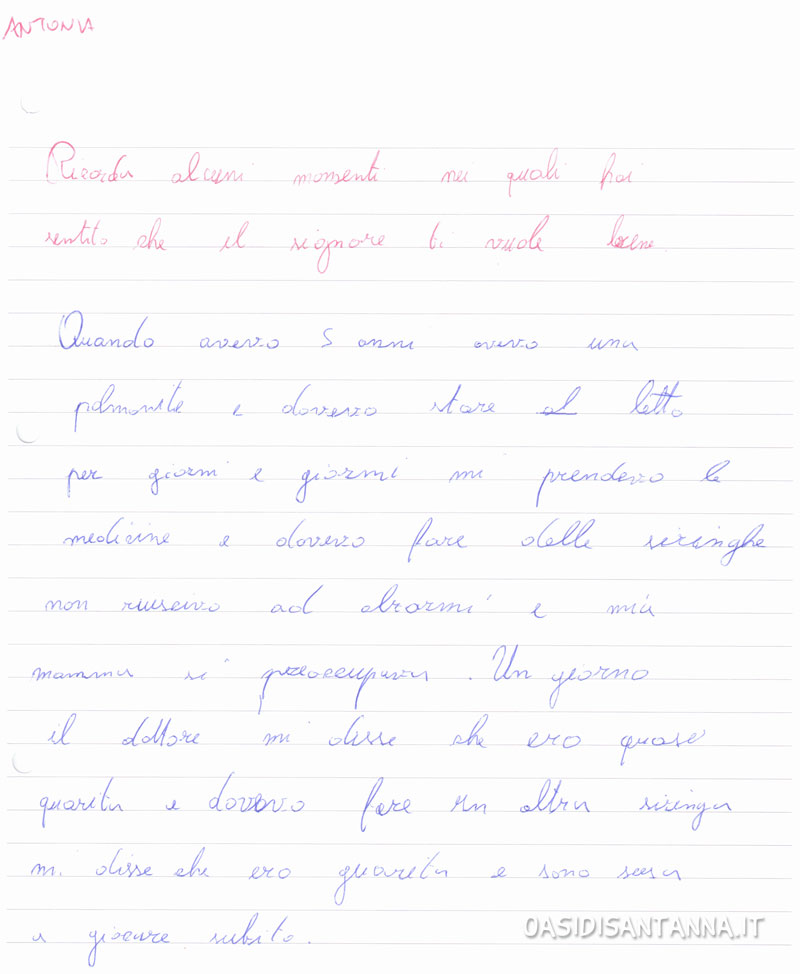 ANTONIA
Ricorda alcuni momenti nei quali hai
sentito che il signore ti vuole bene.
Quando avevo 5 anni avevo una
polmonite e dovevo stare al letto
per giorni e giorni mi prendevo le
medicine e dovevo fare delle siringhe
non riuscivo ad alzarmi e mia
mamma si preoccupava. Un giorno
il dottore mi disse che ero quasi
guarita e dovevo fare un altra siringa
mi disse che ero guarita e sono scesa
a giocare subito.
OASIDISANTANNA.IT